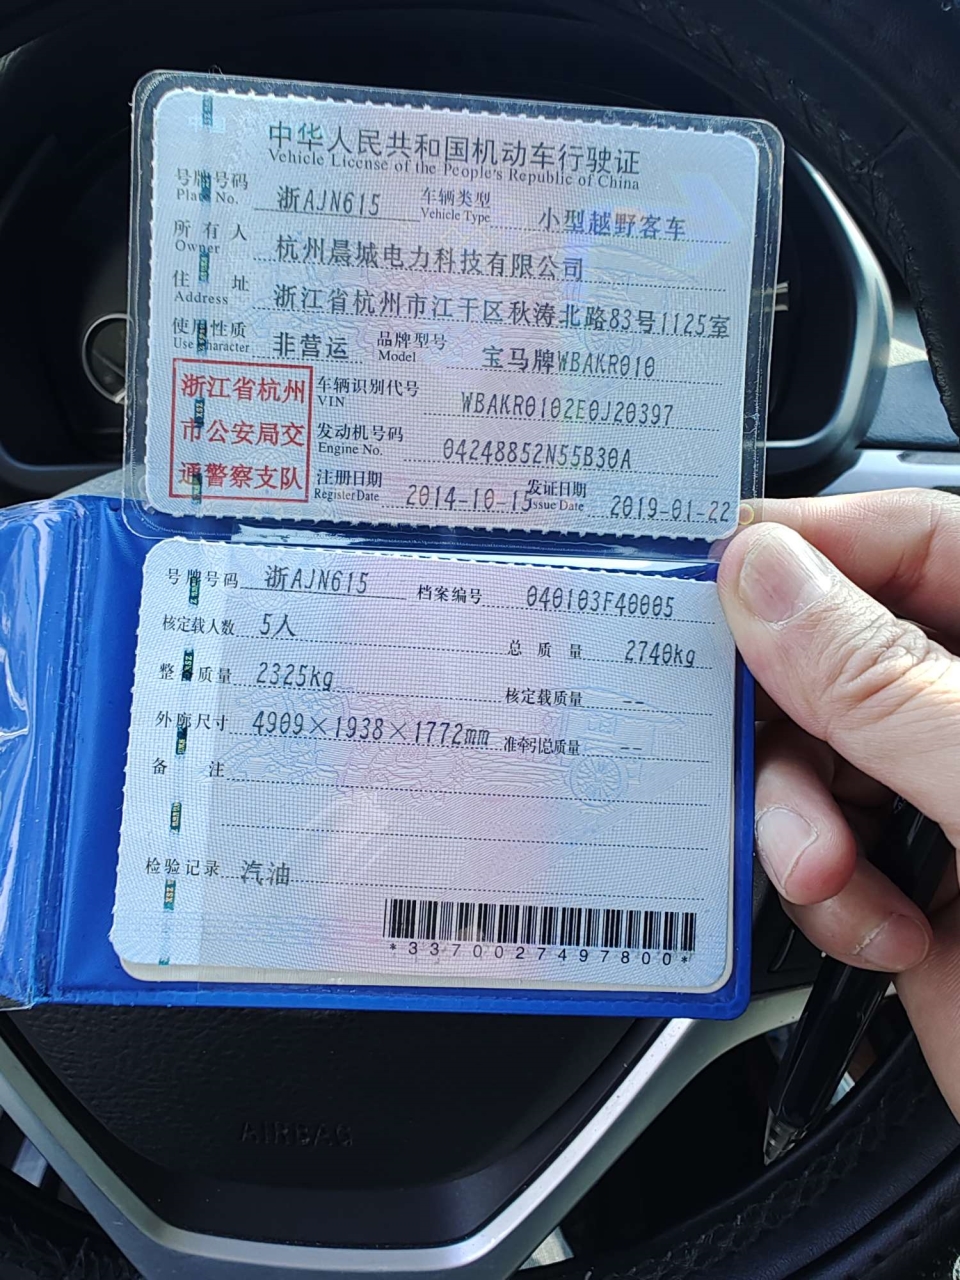 中华人民共和国机动车行驶证
Vehicle License of the People's Republic of China
号牌号码 浙AJN615 车辆类型 小型越野客车
Plate No. Vehicle Type
所有人 杭州晨城电力科技有限公司
Owner
住址 浙江省杭州市江干区秋涛北路83号1125室
Address
使用性质 非营运 品牌型号 宝马牌WBAKR010
Use Character Model
浙江省杭州
市公安局交
通警察支队
车辆识别代号 WBAKR0102E0J20397
VIN
发动机号码 04248852N55B30A
Engine No.
注册日期 2014-10-15 发证日期 2019-01-22
Register Date Issue Date
号牌号码 浙AJN615 档案编号 040103F40005
核定载人数 5人 总质量 2740kg
整备质量 2325kg 核定载质量 --
外廓尺寸 4909×1938×1772mm 准牵引总质量 --
备注
检验记录 汽油
*3370027497800*
AIRBAG